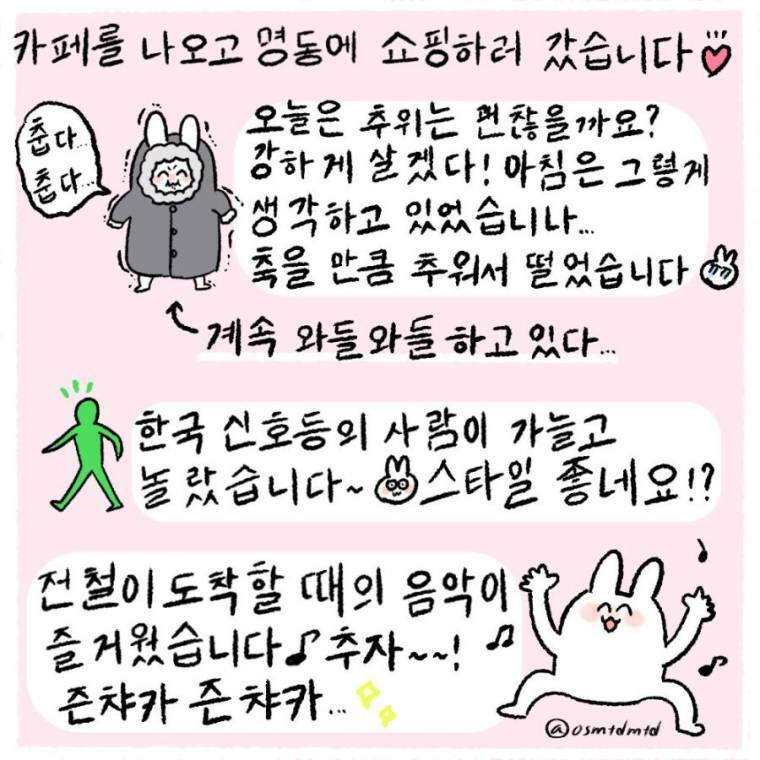 카페를 나오고 명동에 쇼핑하러 갔습니다
춥다...
춥다...
오늘은 추위는 괜찮을까요?
강하게 살겠다! 아침은 그렇게
생각하고 있었습니나...
축을 만큼 추워서 떨었습니다
계속 와들와들하고 있다...
한국 신호등의 사람이 가늘고
놀랐습니다~ 스타일 좋네요!?
전철이 도착할 때의 음악이
즐거웠습니다♪ 추자~~!
즌챠카 즌챠카...
@osmtdmtd